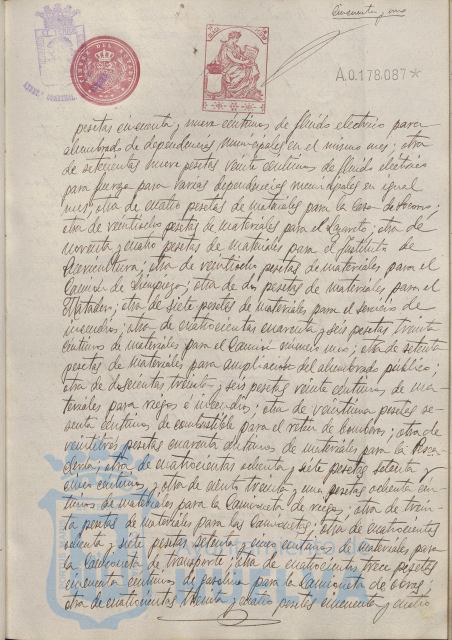 Cincuenta y uno
A.0.178.087*
pesetas cincuenta y nueve centimos de fluido electrico para
alumbrado de dependencias municipales en el mismo mes; otra
de setecientas nueve pesetas veinte centimos de fluido electrico
para fuerza para varias dependencias municipales en igual
mes; otra de cuatro pesetas de materiales para la Casa de Socorro;
otra de veintiocho pesetas de materiales para el Lazareto; otra de
noventa y cuatro pesetas de materiales para el Instituto de
Puericultura; otra de veintiocho pesetas de materiales para el
Camión de Limpieza; otra de dos pesetas de materiales para el
Matadero; otra de siete pesetas de materiales para el servicio de
incendios; otra de cuatrocientas cuarenta y seis pesetas treinta
centimos de materiales para el Camión número uno; otra de setenta
pesetas de materiales para ampliación del alumbrado publico;
otra de doscientas treinta y seis pesetas veinte centimos de ma-
teriales para riegos é incendios; otra de veintiuna pesetas se-
senta centimos de combustible para el retén de bomberos; otra de
veintitres pesetas cuarenta centimos de materiales para la Pesca-
dería; otra de cuatrocientas ochenta y siete pesetas setenta y
cinco centimos; y otra de ciento treinta y una pesetas ochenta cen-
timos de materiales para la Camioneta de riegos; otra de trein-
ta pesetas de materiales para las Camionetas; otra de cuatrocientas
setenta y siete pesetas setenta y cinco centimos de materiales para
la Camioneta de transporte; otra de cuatrocientas trece pesetas
cincuenta centimos de gasolina para la Camioneta de obras;
otra de cuatrocientas treinta y cuatro pesetas cincuenta y cuatro
Ayuntamiento de